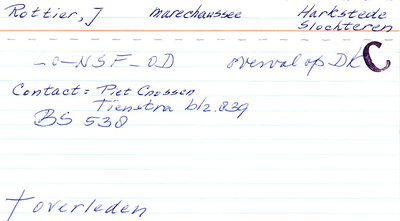 Rottier, J Marechaussee Harkstede
Slochteren
-o-NSF-OD overval op DK C
Contact: Piet Cnossen
Tienstra blz. 839
BS 530
† overleden